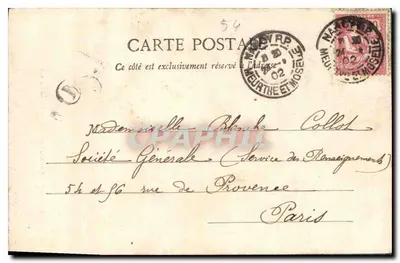 54
CARTE POSTALE
Ce côté est exclusivement réservé
NANCY R.P.
02
MEURTHE ET MOSELLE
NANCY R.P.
02
MEURTHE ET MOSELLE
D
CPAPHIL
Mademoiselle Blanche Collot
Société Générale (Service des Renseignements)
54 et 56 rue de Provence
Paris